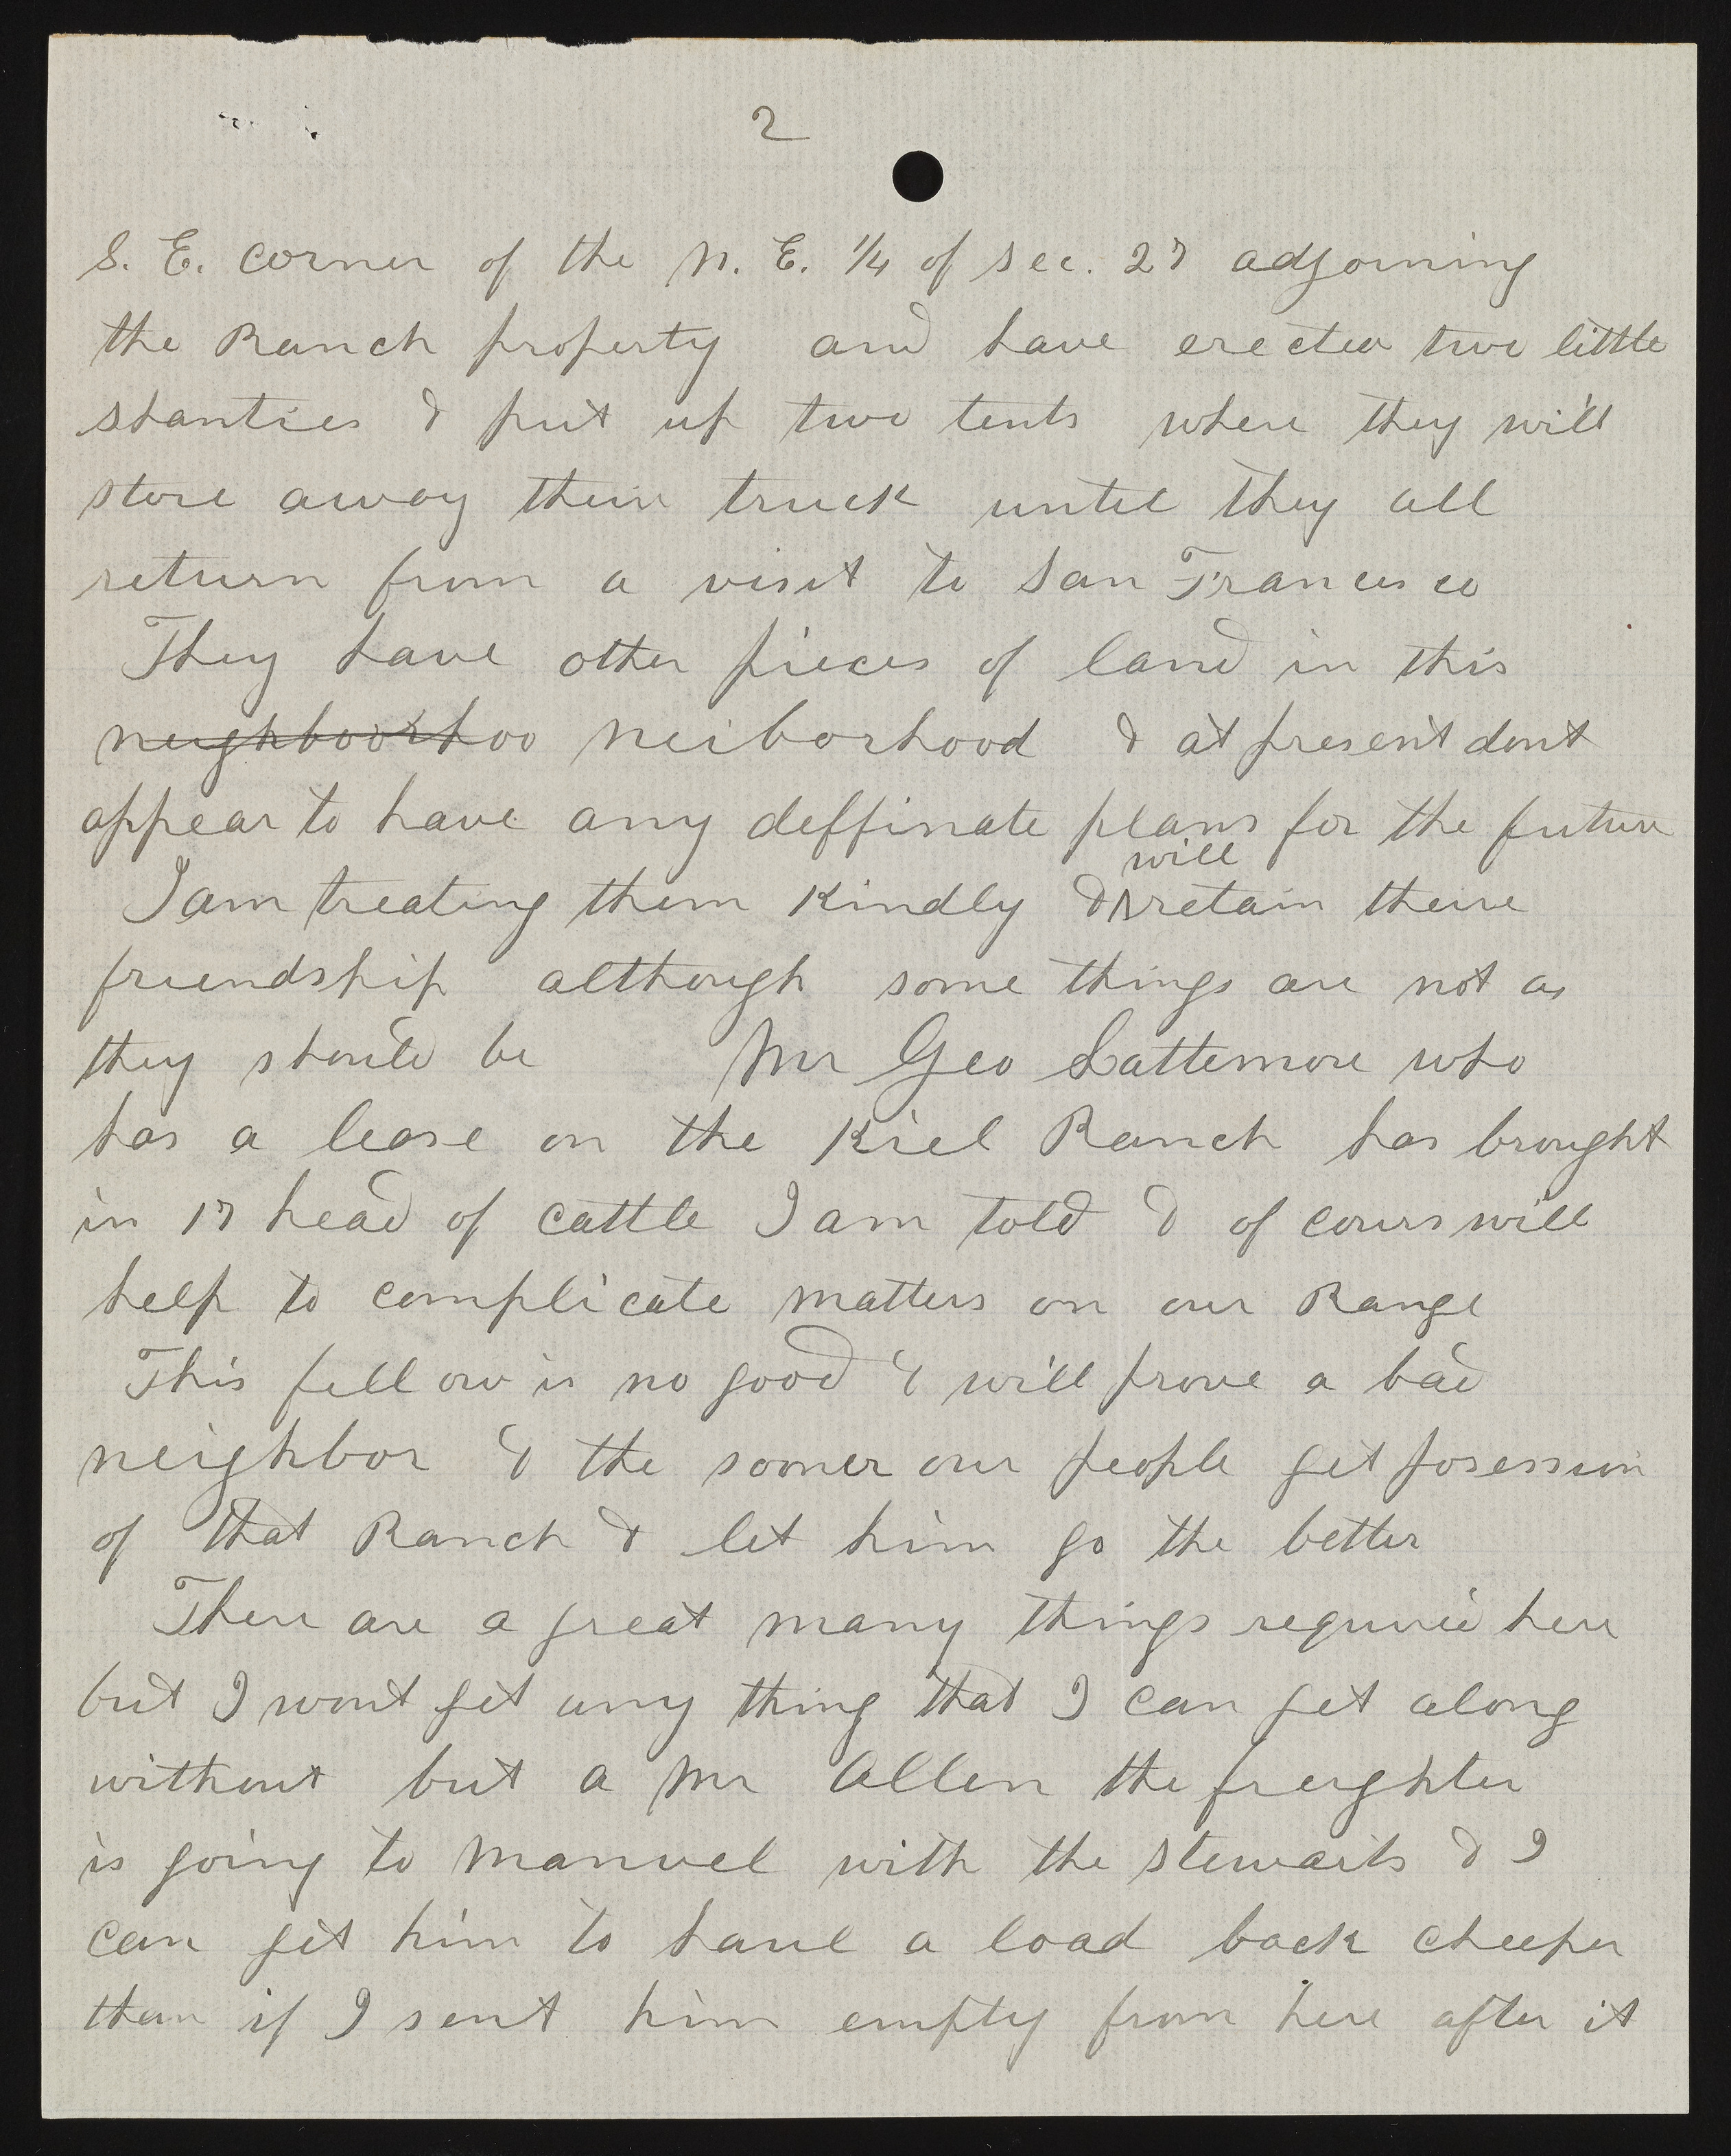 2
S. E. corner of the N. E. 1/4 of sec. 27 adjoining
the Ranch property and have erected two little
shanties & put up two tents where they will
store away their truck until they all
return from a visit to San Francisco
They have other pieces of land in this
neighboorhoo neiborhood & at present dont
appear to have any deffinate plans for the future
will
I am treating them kindly & retain theire
friendship although some things are not as
they should be Mr Geo Lattemore who
has a lease on the Kiel Ranch has brought
in 17 head of cattle I am told & of cours will
help to complicate matters on our Range
This fellow is no good & will prove a bad
neighbor & the sooner our people get posession
of that Ranch & let him go the better
There are a great many things required here
but I wont get any thing that I can get along
without but a Mr Allen the freighter
is going to Manvel with the Stewarts & I
can get him to haul a load back cheeper
than if I sent him empty from here after it